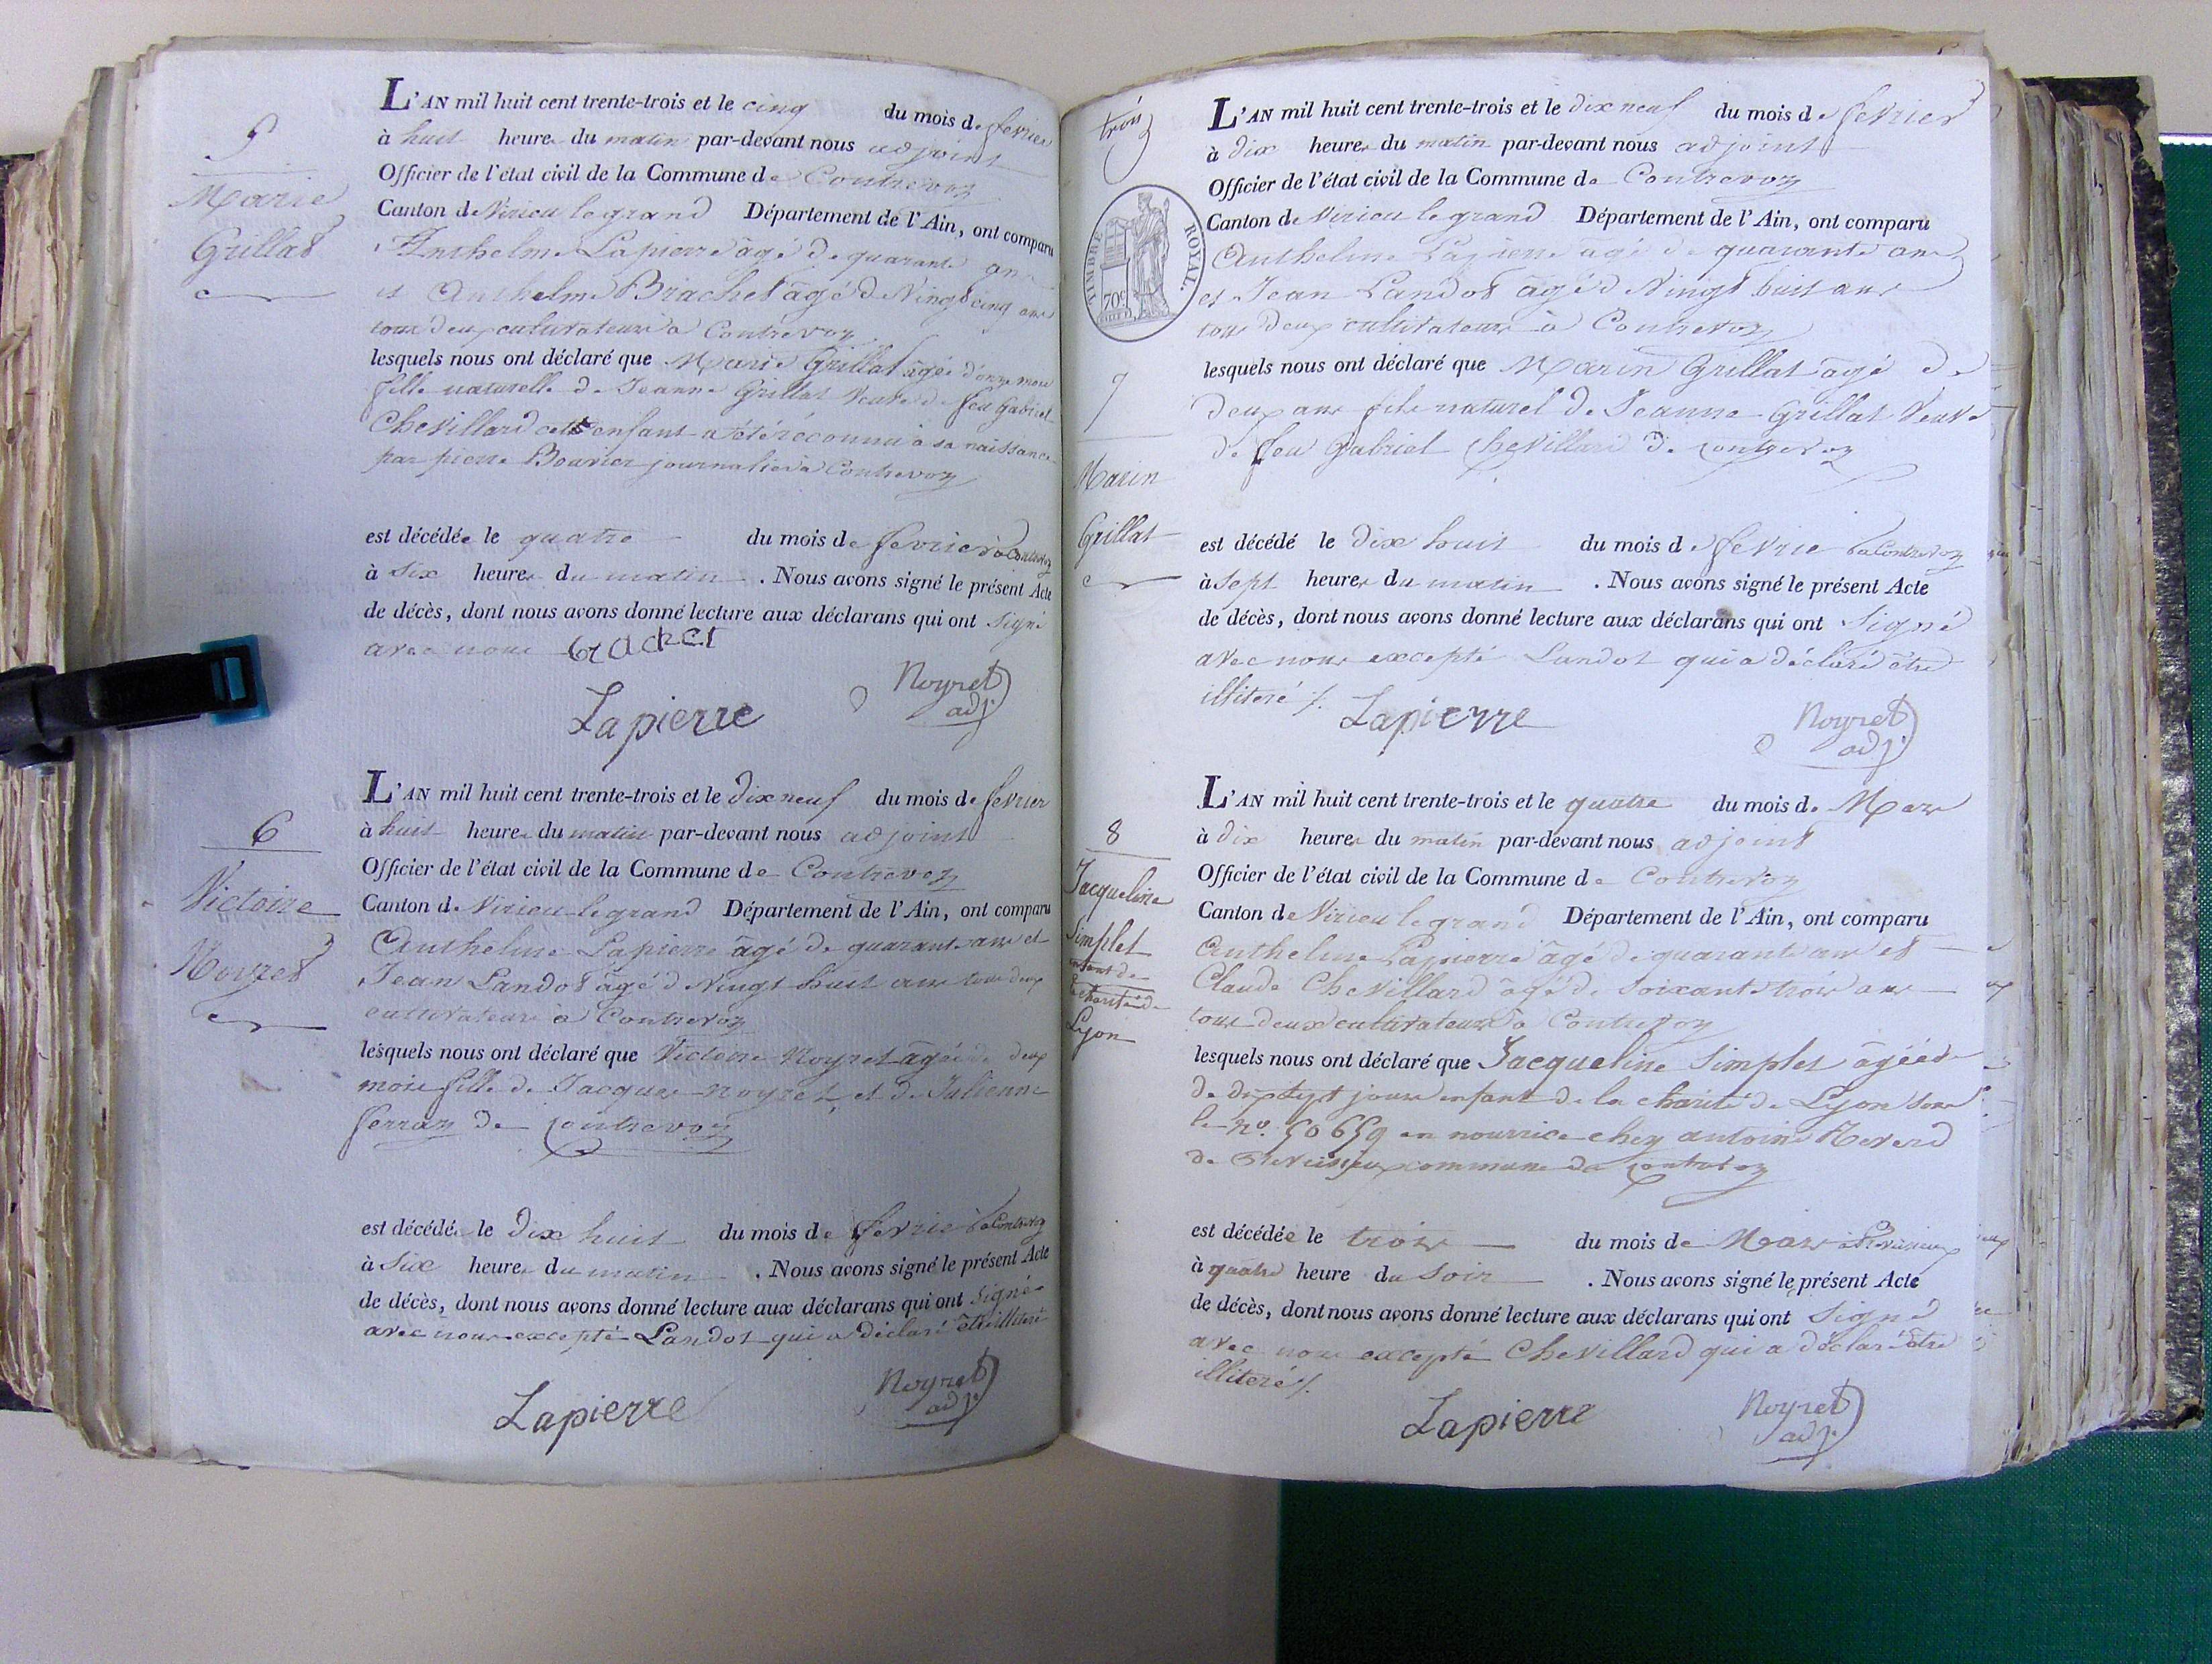 5
Marie
Grillat
L'AN mil huit cent trente-trois et le cinq du mois de fevrier
à huit heures du matin par-devant nous adjoint
Officier de l'état civil de la Commune de Contrevoz
Canton de Virieu le grand Département de l'Ain, ont comparu
Anthelme Lapierre âgé de quarante ans
et Anthelme Brachet âgé de Vingt cinq ans
tous deux cultivateurs à Contrevoz
lesquels nous ont déclaré que Marie Grillat âgée d'onze mois
fille naturelle de Jeanne Grillat Veuve de feu Gabriel
Chevillard cette enfant a été réconnu à sa naissance
par pierre Bouvier journalier à Contrevoz
est décédée le quatre du mois de fevrier à Contrevoz
à six heures du matin . Nous avons signé le présent Acte
de décès, dont nous avons donné lecture aux déclarans qui ont signé
avec nous brachet
Lapierre Noyret
adj.
6
Victoire
Noyret
L'AN mil huit cent trente-trois et le dix neuf du mois de fevrier
à huit heures du matin par-devant nous adjoint
Officier de l'état civil de la Commune de Contrevoz
Canton de Virieu le grand Département de l'Ain, ont comparu
Anthelme Lapierre âgé de quarante ans et
Jean Landot âgé de Vingt huit ans tous deux
cultivateurs à Contrevoz
lesquels nous ont déclaré que Victoire Noyret âgée de deux
mois fille de Jacques noyret et de Julienne
ferraz de Contrevoz
est décédée le Dix huit du mois de fevrie à Contrevoz
à Six heures du matin . Nous avons signé le présent Acte
de décès, dont nous avons donné lecture aux déclarans qui ont signé
avec nous excepté Landot qui a déclaré être illiteré
Lapierre Noyret
adj.
trois
TIMBRE ROYAL.
70c
7
Marin
Grillat
L'AN mil huit cent trente-trois et le dix neuf du mois de fevrier
à dix heures du matin par-devant nous adjoint
Officier de l'état civil de la Commune de Contrevoz
Canton de Virieu le grand Département de l'Ain, ont comparu
Anthelme Lapierre âgé de quarante ans
et Jean Landot âgé de Vingt huit ans
tous deux cultivateurs à Contrevoz
lesquels nous ont déclaré que Marin Grillat âgé de
deux ans fils naturel de Jeanne Grillat Veuve
de feu Gabriel Chevillard de Contrevoz
est décédé le Dix huit du mois de fevrie à Contrevoz
à Sept heures du matin . Nous avons signé le présent Acte
de décès, dont nous avons donné lecture aux déclarans qui ont signé
avec nous excepté Landot qui a déclaré être
illiteré /. Lapierre Noyret
adj.
8
Jacqueline
Simplet
enfant de
la charité de
Lyon
L'AN mil huit cent trente-trois et le quatre du mois de Mars
à dix heures du matin par-devant nous adjoint
Officier de l'état civil de la Commune de Contrevoz
Canton de Virieu le grand Département de l'Ain, ont comparu
Anthelme Lapierre âgé de quarante ans et
Claude Chevillard âgé de soixante trois ans
tous deux cultivateurs à Contrevoz
lesquels nous ont déclaré que Jacqueline Simplet âgée de
de dix sept jours enfant de la charité de Lyon sous
le no. 50659 en nourrice chez antoine
de commune de Contrevoz
est décédée le trois du mois de Mars
à quatre heure du Soir . Nous avons signé le présent Acte
de décès, dont nous avons donné lecture aux déclarans qui ont Signé
avec nous excepté Chevillard qui a déclaré être
illiteré /.
Lapierre Noyret
adj.